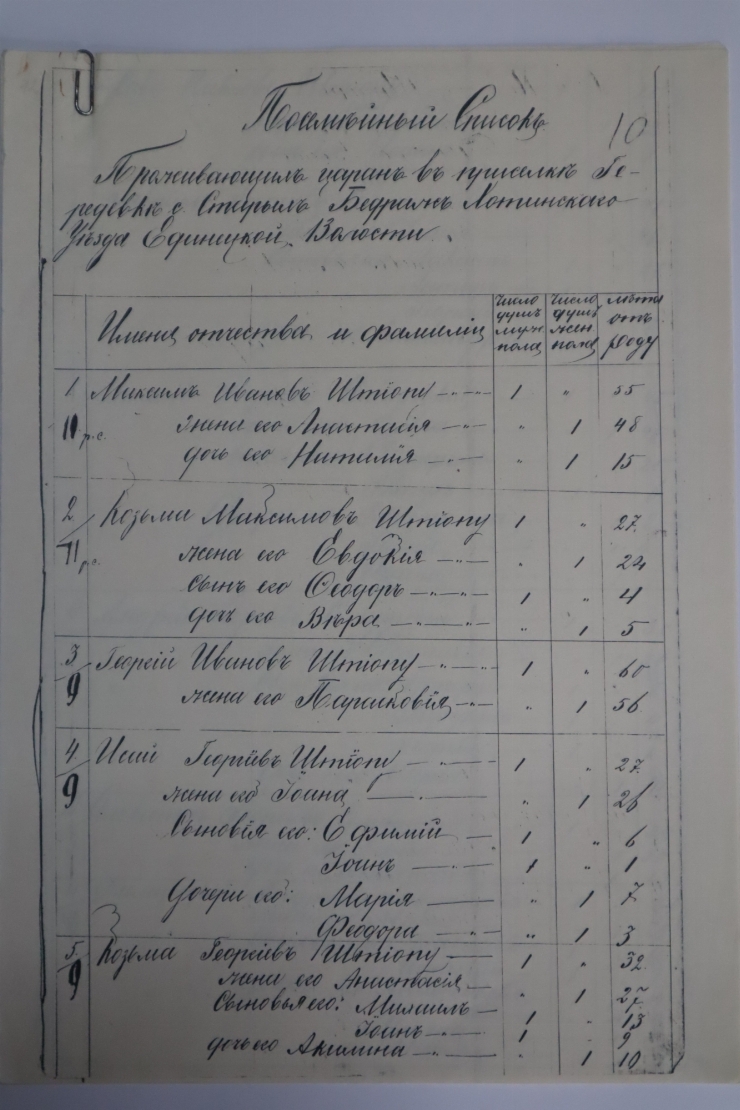 Посемейный Списокъ
10
Проживающимъ царанъ въ приселкѣ Ге-
редевкѣ с. Старымъ Бедражъ Хотинскаго
Уѣзда Единецкой Волости.
Имена отчества и фамиліи
Число душъ муж. пола
Число душъ жен. пола
Лѣта отъ роду
1 Максимъ Ивановъ Штіопу 1 " 55
10 р.с. жена его Анастасія " 1 48
дочь его Наталія " 1 15
2 Козьма Максимовъ Штіопу 1 " 27
11 р.с. жена его Евдокія " 1 24
сынъ его Ѳеодоръ 1 " 4
дочь его Вѣра " 1 5
3 Георгій Ивановъ Штіопу 1 " 60
9 жена его Парасковія " 1 56
4 Георгіевъ Штіопу 1 " 27
9 жена его Іоана " 1 26
Сыновія его: Ефимій 1 " 6
Іоанъ 1 " 1
Дочери его: Марія " 1 7
Ѳеодора " 1 3
5 Козьма Георгіевъ Штіопу 1 " 32
9 жена его Анастасія " 1 27
Сыновья его: Михаилъ 1 " 13
Іоанъ 1 " 9
дочь его Акилина " 1 10